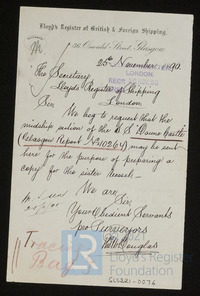 Lloyd's Register of British & Foreign Shipping.
36 Oswald Street, Glasgow
25th November 1890.
The Secretary
Lloyds Register of Shipping
LONDON
London
Sir
We beg to request that the
midship section of the S.S. "Doune Castle"
(Glasgow Report No 10264) may be sent
here for the purpose of preparing a
copy for the sister vessel.
We are,
Sir
Your Obedient Servants
pro Surveyors
Douglas
Tracing
Bay
Lloyd's Register
Foundation
GLS221-0076